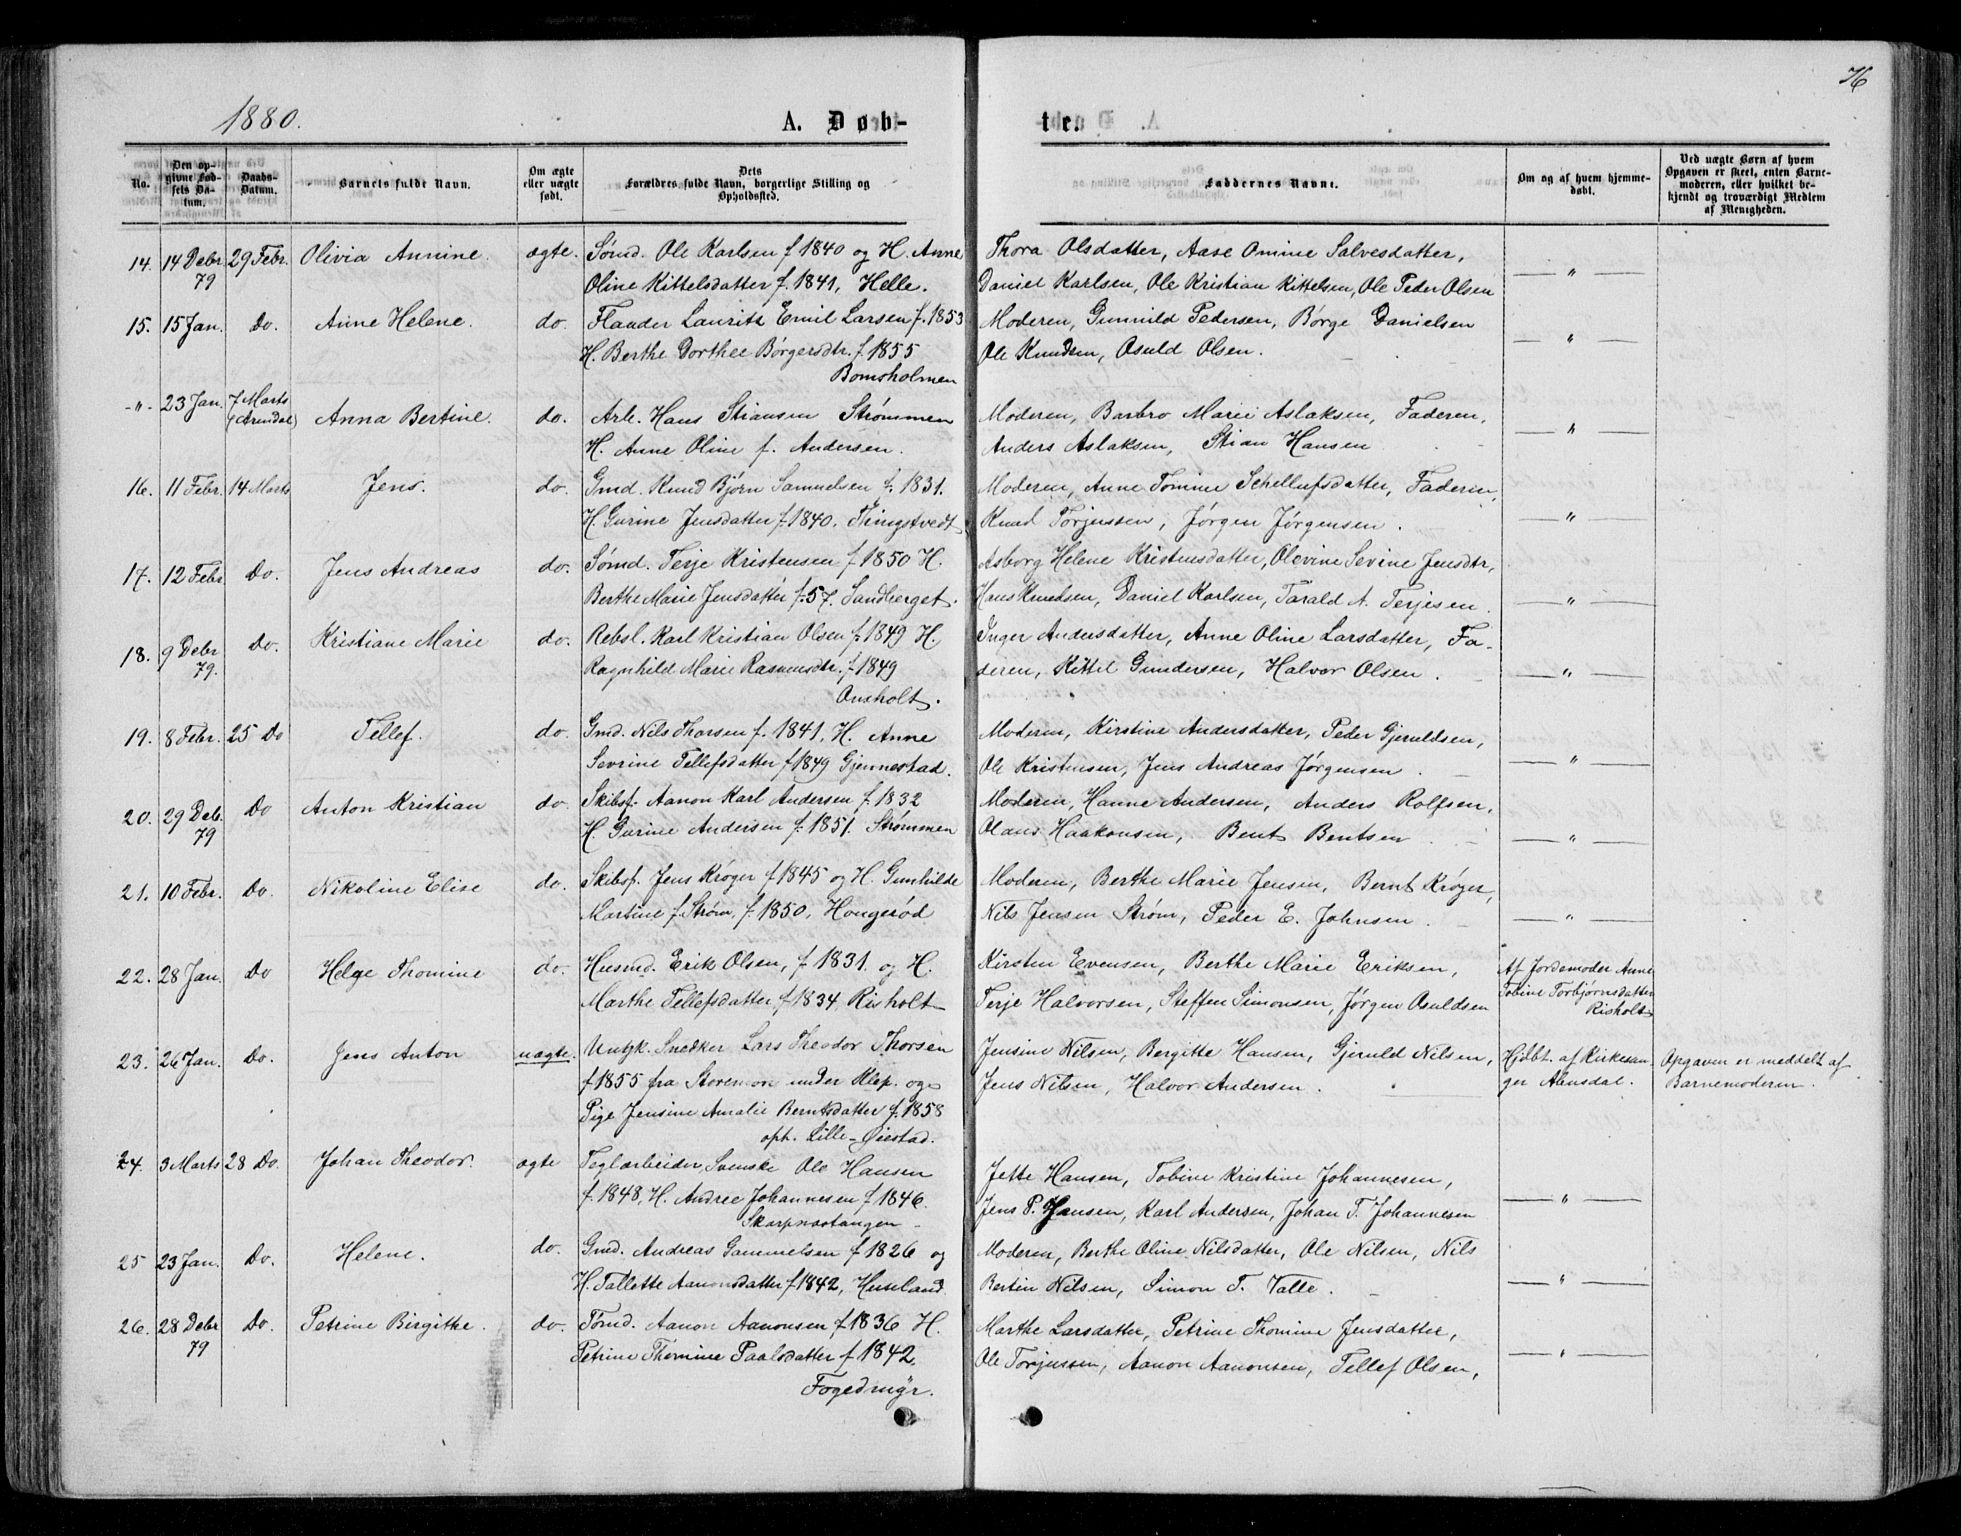 76
1880.
A. Døb-
te.
No.
Den op-
givne Fød-
sels Da-
tum.
Daabs-
Datum.
Barnets fulde Navn.
Om ægte
eller uægte
født.
Dets
Forældres fulde Navn, borgerlige Stilling og
Opholdssted.
Faddernes Navne.
Om og af hvem hjemme-
døbt.
Ved uægte Børn af hvem
Opgaven er skeet, enten Barne-
moderen, eller hvilket be-
kjendt og troværdigt Medlem
af Menigheden.
14. 14 Debr. 29 Febr. Olivia Annine. ægte. Sømd. Ole Karlsen f 1840 og H. Anne
79 Oline Kittelsdatter f. 1841, Helle.
Thora Olsdatter, Aase Omine Salvesdatter,
Daniel Karlsen, Ole Kristian Kittelsen, Ole Peder Olsen — " —
15. 15 Jan. Do. Anne Helene. do. Flauder Lauritz Emil Larsen f. 1853
H. Berthe Dorthee Børgersdtr. f. 1855
Bomsholmen
Moderen, Gunnild Pedersen, Børge Danielsen
Ole Knudsen, Osuld Olsen. — " —
-"- 23 Jan. 7 Marts Anna Bertine. do. Arb. Hans Stiansen Strømmen
(Arendal) H. Anne Oline f. Andersen.
Moderen, Barbro Marie Aslaksen, Faderen,
Anders Aslaksen, Stian Hansen — " —
16. 11 Febr. 14 Marts Jens. do. Gmd. Knud Bjørn Samuelsen f. 1831.
H. Gurine Jensdatter f. 1840. Tingstvedt
Moderen, Anne Tomine Schellufsdatter, Faderen,
Knud Torjussen, Jørgen Jørgensen. — " —
17. 12 Febr Do. Jens Andreas do. Sømd. Terje Kristensen f 1850 H.
Berthe Marie Jensdatter f. 57. Sandberget.
Asborg Helene Kristensdatter, Olevine Sevine Jensdtr,
Hans Knudsen, Daniel Karlsen, Tarald A. Terjesen. — " —
18. 9 Debr Do. Kristiane Marie do. Rebsl. Karl Kristian Olsen f. 1849 H.
79. Ragnhild Marie Rasmusdtr. f. 1849
Onsholt.
Inger Andersdatter, Anne Oline Larsdatter, Fa-
deren, Kittel Gundersen, Halvor Olsen. — " —
19. 8 Febr. 25 Do Tellef. do. Gmd. Nils Thorsen f. 1841, H. Anne
Sevrine Tellefsdatter f 1849 Gjennestad.
Moderen, Kirstine Andersdatter, Peder Gjeruldsen,
Ole Kristensen, Jens Andreas Jørgensen. — " —
20. 29 Deb. Do Anton Kristian do. Skibsf. Aanon Karl Andersen f. 1832
79 H. Gurine Andersen f. 1851. Strømmen
Moderen, Hanne Andersen, Anders Rolfsen,
Olaus Haakonsen, Bent Bentsen. — " —
21. 10 Febr. Do. Nikoline Elise do. Skibsf. Jens Krøger f 1845 og H. Gunhilde
Martine f. Strøm, f. 1850, Hougerød
Moderen, Berthe Marie Jensen, Bernt Krøger,
Nils Jensen Strøm, Peder E. Johnsen. — " —
22. 28 Jan. Do Helge Thomine do. Husmd. Erik Olsen, f 1831. og H.
Marthe Tellefsdatter f 1834 Risholt
Kirsten Evensen, Berthe Marie Eriksen,
Terje Halvorsen, Steffen Simonsen, Jørgen Osuldsen
Af Jordemoder Anne
Tobine Torbjørnsdatter
Risholt
23. 26 Jan. Do. Jens Anton uægte. Untgk. Snedker Lars Theodor Thorsen
f 1855 fra Storemon under Klep. og
Pige Jensine Amalie Berntsdatter f. 1858
oph. Lille-Øiestad.
Jensine Nilsen, Bergitte Hansen, Gjeruld Nilsen,
Jens Nilsen, Halvor Andersen.
Hjdbt. af Kirkesan-
ger Alensdal.
Opgaven er meddelt af
Barnemoderen.
24. 3 Marts 28 Do. Johan Theodor. ægte Teglarbeider, Svenske Ole Hansen
f. 1848, H. Andree Johannesen f 1846.
Skarpnæstangen
Jette Hansen, Tobine Kristine Johannesen,
Jens P. Hansen, Karl Andersen, Johan T. Johannesen — " —
25 23 Jan. Do. Helene. do. Gmd. Andreas Gammelsen f 1826 og
H. Tallette Aanonsdatter f 1842, Huseland
Moderen, Berthe Oline Nilsdatter, Ole Nilsen, Nils
Bertin Nilsen, Simon T. Valle. — " —
26. 28 Debr Do. Petrine Birgithe. do. Tomd. Aanon Aanonsen f 1836 H.
79 Petrine Thomine Paalsdatter f. 1842,
Fogedmyr.
Marthe Larsdatter, Petrine Thomine Jensdatter,
Ole Torjussen, Aanon Aanonsen, Tellef Olsen, — " —